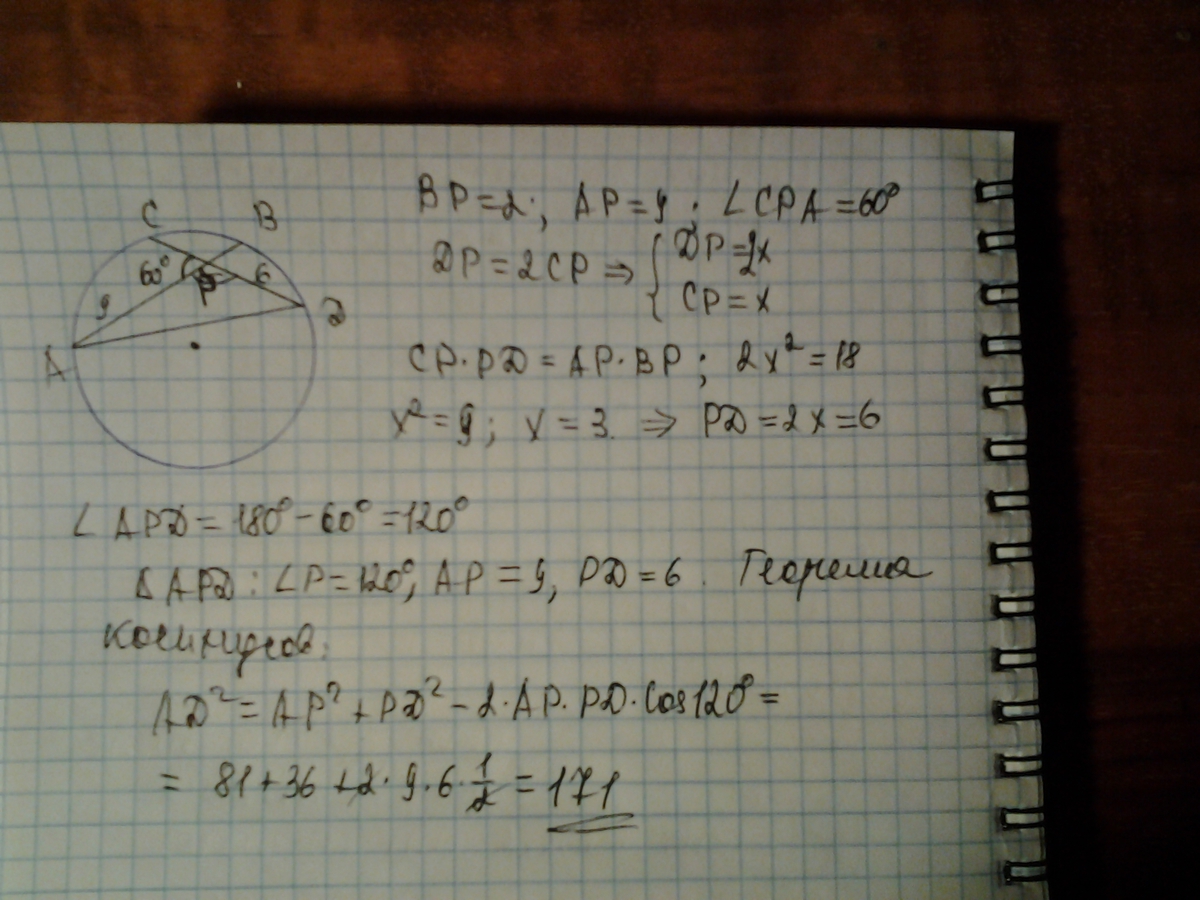 C B
60° 6
9 P
A D
BP = 2; AP = 9; ∠CPA = 60°
DP = 2CP ⇒ { DP = 2x
CP = x
CP·PD = AP·BP; 2x² = 18
x² = 9; x = 3. ⇒ PD = 2x = 6
∠APD = 180° − 60° = 120°
ΔAPD: ∠P = 120°, AP = 9, PD = 6. Теорема
косинусов:
AD² = AP² + PD² − 2·AP·PD·Cos120° =
= 81 + 36 + 2·9·6·1/2 = 171